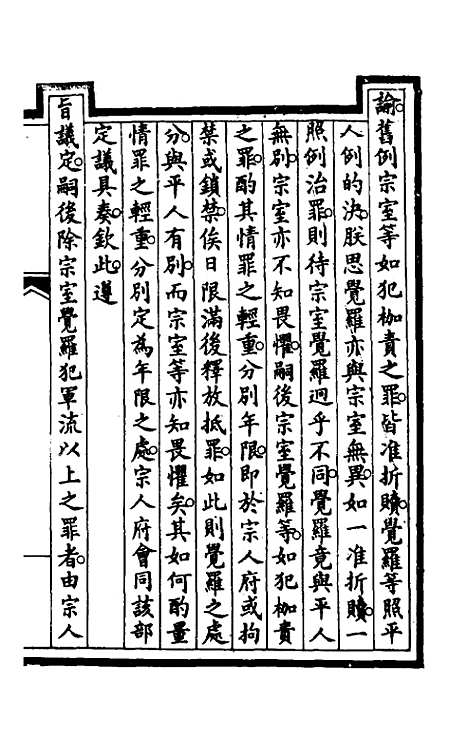 諭舊例宗室等如犯枷責之罪皆准折贖覺羅等照平
人例的決朕思覺羅亦與宗室無異如一准折贖一
照例治罪則待宗室覺羅迥乎不同覺羅竟與平人
無別宗室亦不知畏懼嗣後宗室覺羅等如犯枷責
之罪酌其情罪之輕重分別年限即於宗人府或拘
禁或鎖禁俟日限滿後釋放抵罪如此則覺羅之處
分與平人有別而宗室等亦知畏懼矣其如何酌量
情罪之輕重分別定為年限之處宗人府會同該部
定議具奏欽此遵
旨議定嗣後除宗室覺羅犯軍流以上之罪者由宗人